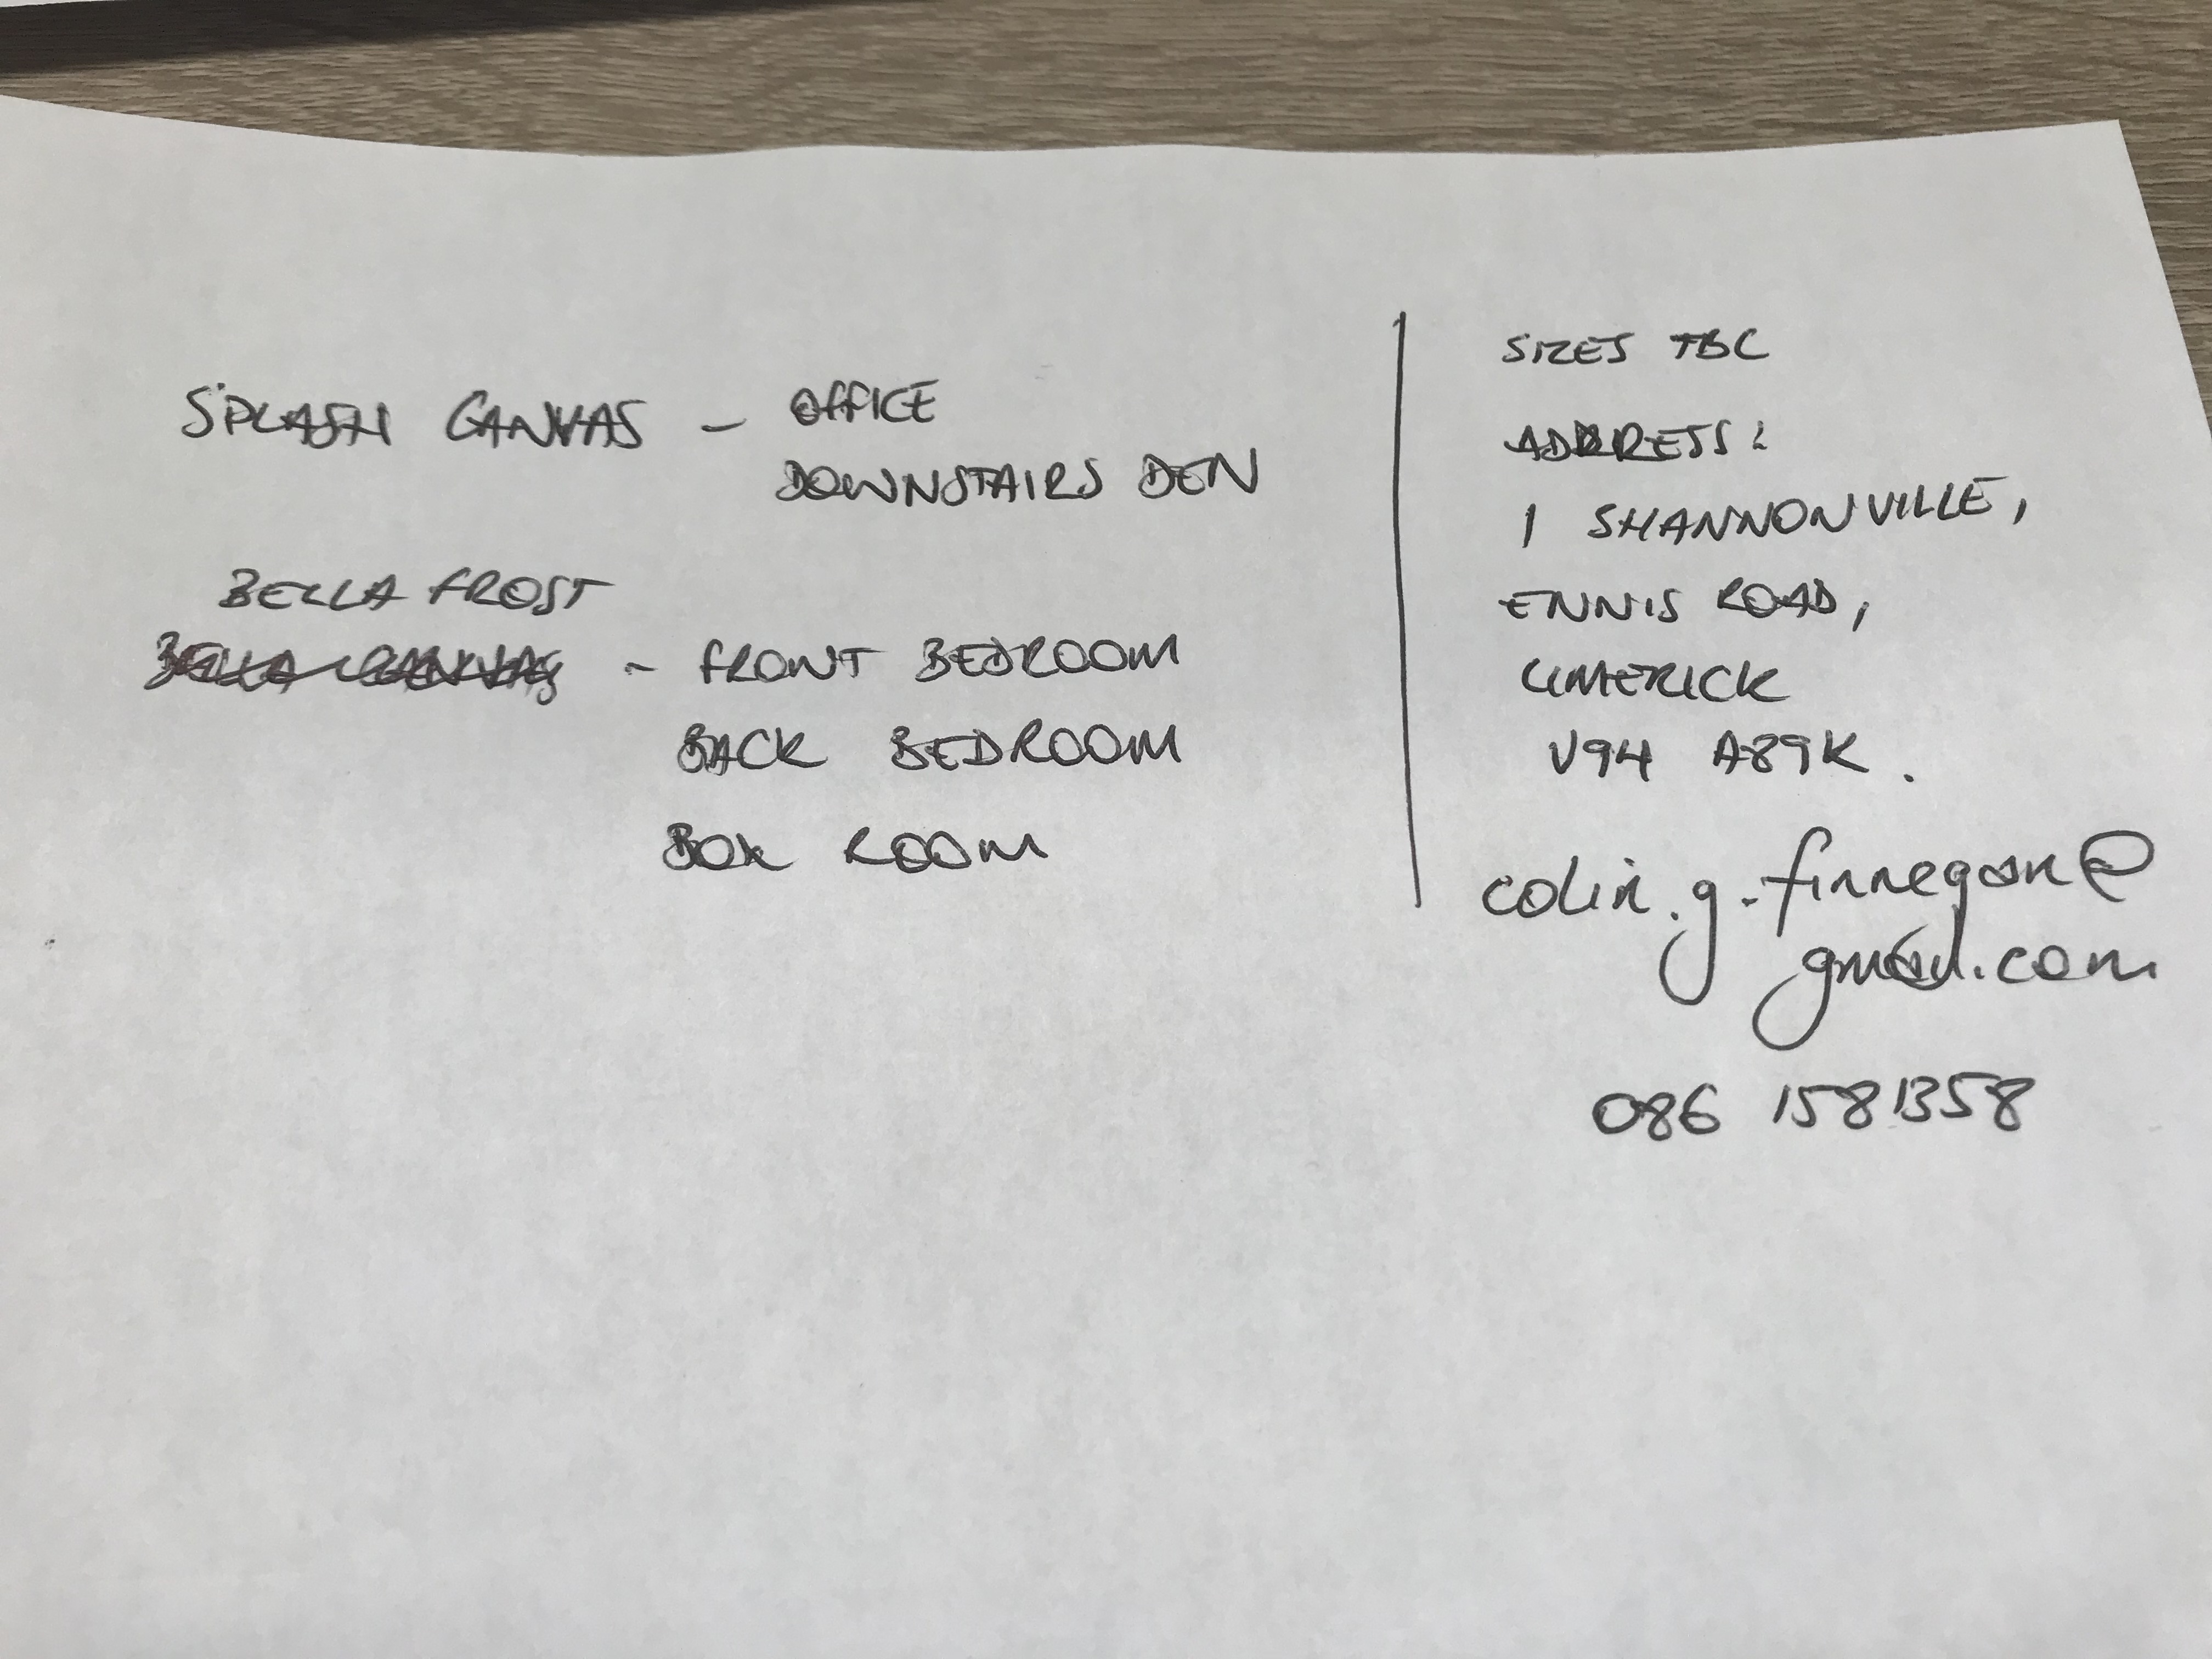 SPLASH CANVAS - OFFICE
DOWNSTAIRS DEN
BELLA FROST
BELLA CANVAS - FRONT BEDROOM
BACK BEDROOM
BOX ROOM
SIZES TBC
ADDRESS:
1 SHANNONVILLE,
ENNIS ROAD,
LIMERICK
V94 A89K.
colin.g.finnegan@
gmail.com
086 1581358